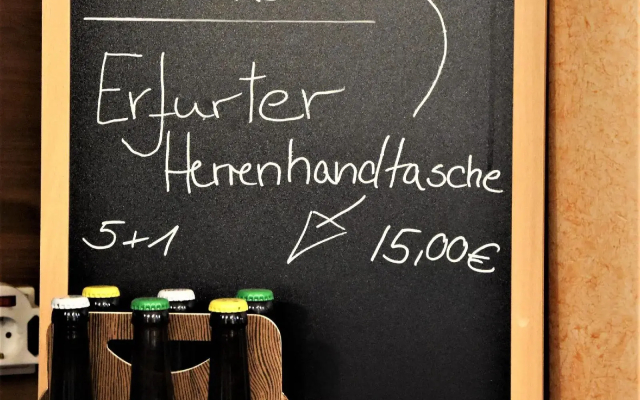 Erfurter
Herrenhandtasche
5+1 15,00€